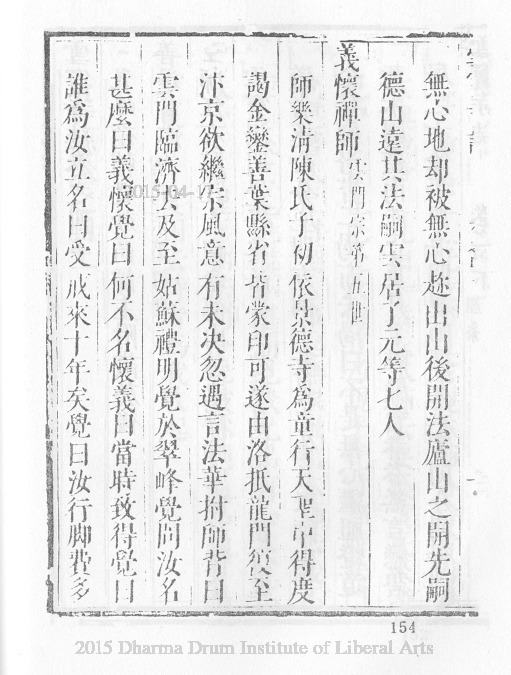 無心地却被無心趂出山後開法廬山之開先嗣
德山遠其法嗣雲居了元等七人
義懷禪師雲門宗第五世
師樂清陳氏子初依景德寺爲童行天聖中得度
謁金鑾善葉縣省皆蒙印可遂由洛抵龍門復至
汴京欲繼宗風意有未决忽遇言法華拊師背曰
雲門臨濟去及至姑蘇禮明覺於翠峰覺問汝名
甚麼曰義懷覺曰何不名懷義曰當時致得覺曰
誰爲汝立名曰受戒來十年矣覺曰汝行脚費多
154
2015-04-17
2015 Dharma Drum Institute of Liberal Arts